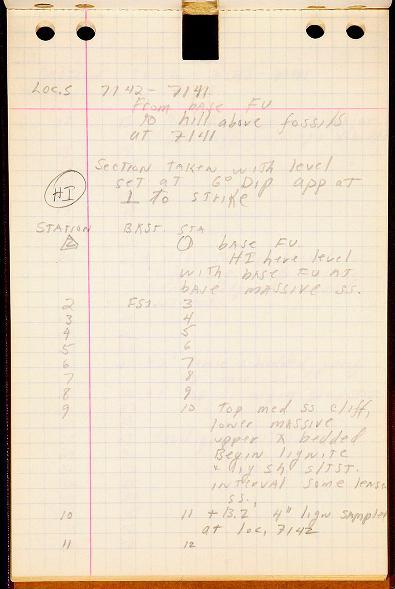 Loc.s 7142 - 7141
From base FU
to hill above fossils
at 7141
Section taken with level
set at 6° Dip app at
⊥ to strike
HI
Station BKST. STA
2 1 base FU
HI here level
with base FU at
base massive ss.
2 FS1. 3
3 4
4 5
5 6
6 7
7 8
8 9
9 10 top med ss cliff,
lower massive
upper X bedded
Begin lignite
sh sltst.
interval some lense
ss.,
10 11 +13.2 4" lign sample
at loc, 7142
11 12